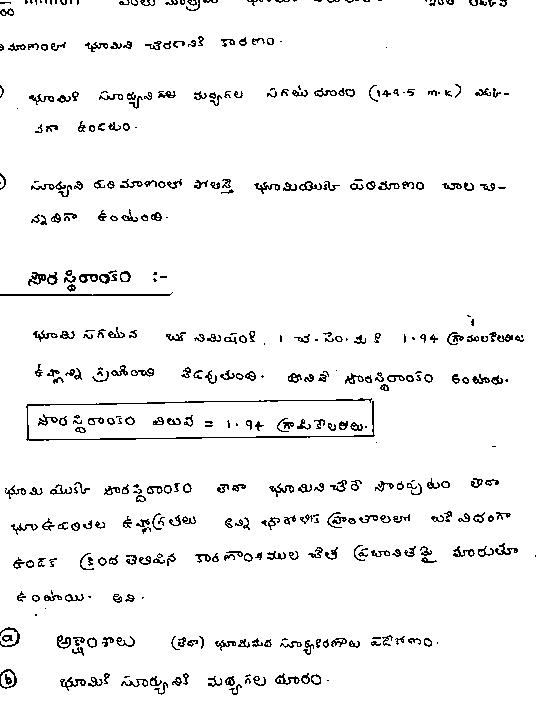 పరిమాణంలో భూమిని చేరడానికి కారణం.
భూమికి సూర్యునిగల మధ్యగల సగటుదూరం (149.5 m.k) ఎక్కు-
వగా ఉండటం.
సూర్యుని పరిమాణంలో పోలిస్తే భూమియొక్క పరిమాణం చాల చి-
న్నదిగా ఉంటుంది.
సౌరస్థిరాంకం :-
భూమి సగటున ఒక నిమిషంకి, 1 చ.సెం.మీ కి 1.94 గ్రాములకేలరీలు
ఉష్ణాన్ని గ్రహించి వేడెక్కుతుంది. దీనినే సౌరస్థిరాంకం అంటారు.
సౌరస్థిరాంకం విలువ = 1.94 గ్రామ్ కేలరీలు.
భూమి యొక్క సౌరస్థిరాంకం లేదా భూమిని చేరే సౌరపుటం లేదా
భూఉపరితల ఉష్ణోగ్రతలు అన్ని భూభాగ ప్రాంతాలలో ఒకే విధంగా
ఉండక క్రింద తెలిపిన కారణాంశముల చేత ప్రభావితమై మారుతూ
ఉంటాయి. అవి.
(a) అక్షాంశాలు (లేదా) భూమిమీద సూర్యకిరణాలు పడేకోణం.
(b) భూమికి సూర్యునికి మధ్యగల దూరం.